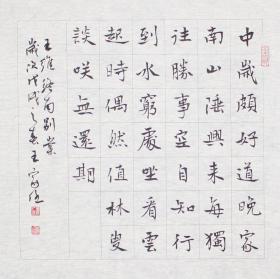 中歲頗好道晚家
南山陲興來每獨
往勝事空自知行
到水窮處坐看雲
起時偶然值林叟
談咲無還期
王維終南別業
歲次戊戌之春王家